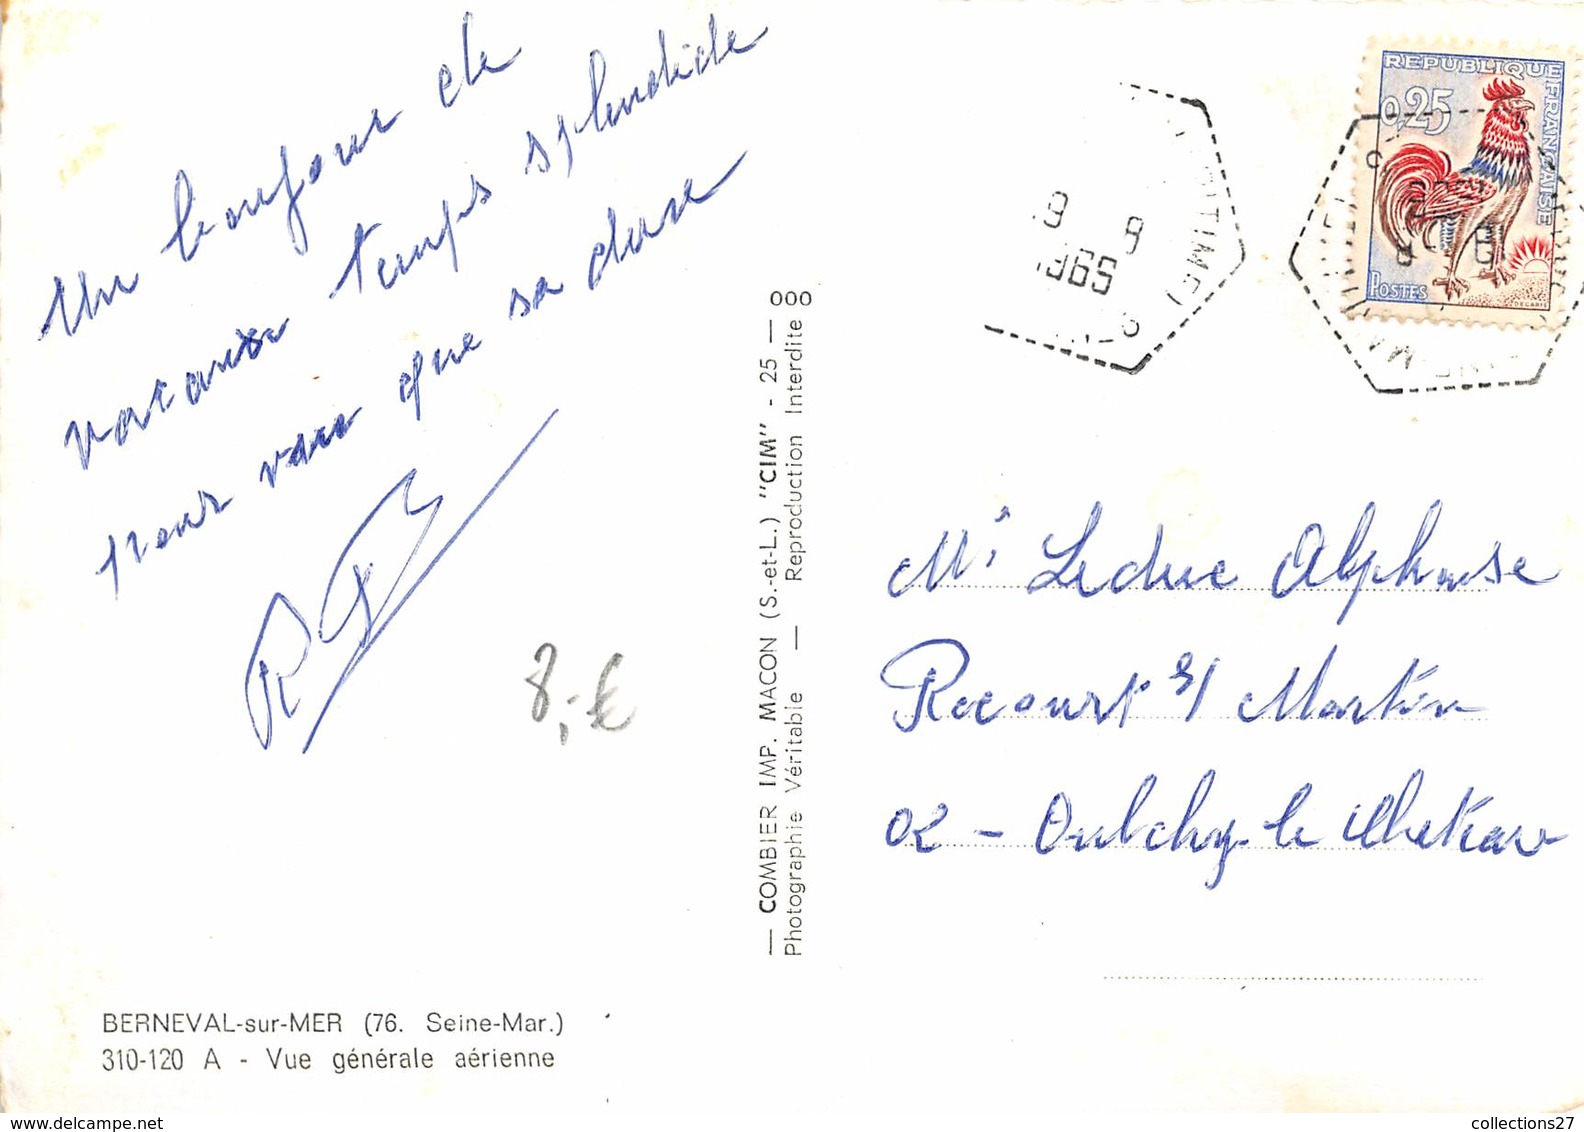 Un bonjour de
vacances temps splendide
pour vu que sa dure
8,-€
BERNEVAL-sur-MER (76. Seine-Mar.)
310-120 A - Vue générale aérienne
— COMBIER IMP. MACON (S.-et-L.) "CIM" - 25 — 000
Photographie Véritable — Reproduction Interdite
9 9
1965
REPUBLIQUE FRANÇAISE
0,25
POSTES
DECARIS
Mr Leduc Alphonse
Rocourt St Martin
02 - Oulchy-le Chateau
collections27